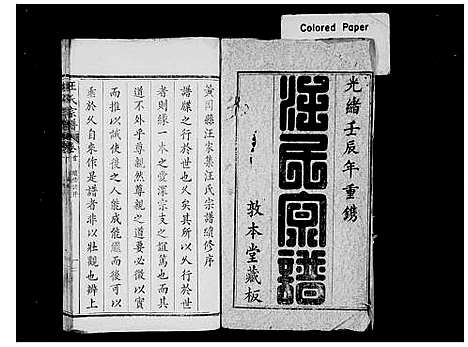 Colored Paper
光緒壬辰年重鐫
汪氏宗譜
敦本堂藏板
黃岡縣汪家集汪氏宗譜續修序
譜牒之行於世也久矣其所以久行於世
者則緣一本之愛深宗支之誼篤也而其
道不外乎尊親然尊親之道要必徵以實
而推以誠使後之人能成能繼而後可以
垂於久自來作是譜者非以壯觀也辨上
汪氏宗譜